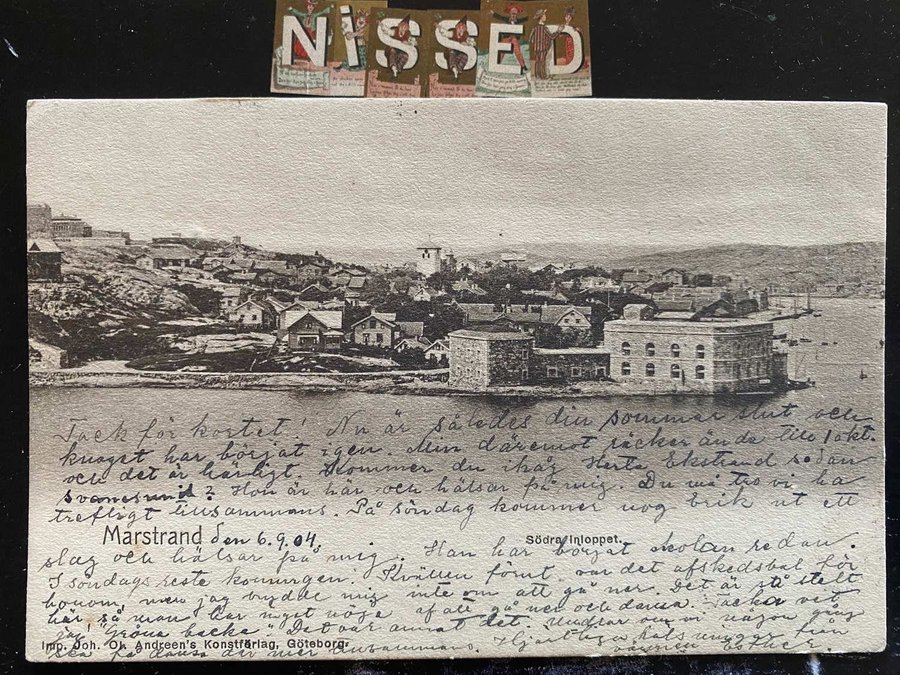 NiSSED
Tack för kortet! Nu är således din sommar slut och
knoget har börjat igen. Min däremot räcker ända till 1 okt.
och det är härligt. Kommer du ihåg Herta Ekstrand sedan
Svanesund? Hon är här och hälsar på mig. Du må tro vi ha
trefligt tillsammans. På söndag kommer nog Erik ut ett
Marstrand den 6.9.04.
Södra Inloppet.
slag och hälsar på mig. Han har börjat skolan redan.
I söndags reste konungen. Kvällen förut var det afskedsbal för
honom, men jag brydde mig inte om att gå ner. Det är så stelt
här så man har inget nöje af att gå ner och dansa. Tacka vet
jag "Gröna backa". Det var annat det. Undrar om vi någon gång
ska få dansa där mer tillsammans. Hjärtliga hälsningar från
vännen Esther.
Imp. Joh. Ol. Andreen's Konstförlag, Göteborg.